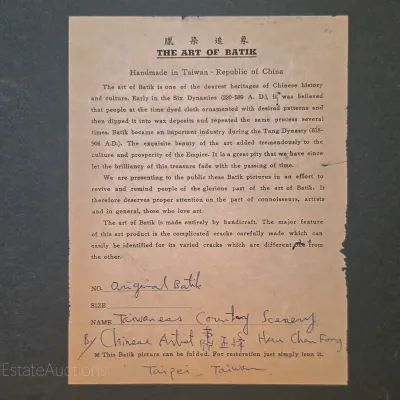 THE ART OF BATIK
Handmade in Taiwan - Republic of China
The art of Batik is one of the dearest heritages of Chinese history
and culture. Early in the Six Dynasties (290-589 A. D.), it was believed
that people at the time dyed cloth ornamented with desired patterns and
then dipped it into wax deposits and repeated the same process several
times. Batik became an important industry during the Tang Dynasty (618-
906 A.D.). The exquisite beauty of the art added tremendously to the
culture and prosperity of the Empire. It is a great pity that we have since
let the brilliancy of this treasure fade with the passing of time.
We are presenting to the public these Batik pictures in an effort to
revive and remind people of the glorious part of the art of Batik. It
therefore deserves proper attention on the part of connoisseurs, artists
and in general, those who love art.
The art of Batik is made entirely by handicraft. The major feature
of this art product is the complicated cracks carefully made which can
easily be identified for its varied cracks which are different one from
the other.
NO. Original Batik
SIZE
NAME Taiwanees Country Scenery
By Chinese Artist Hsu Chan Fong
This Batik picture can be folded. For restoration just simply iron it.
Taipei, Taiwan
EstateAuctions